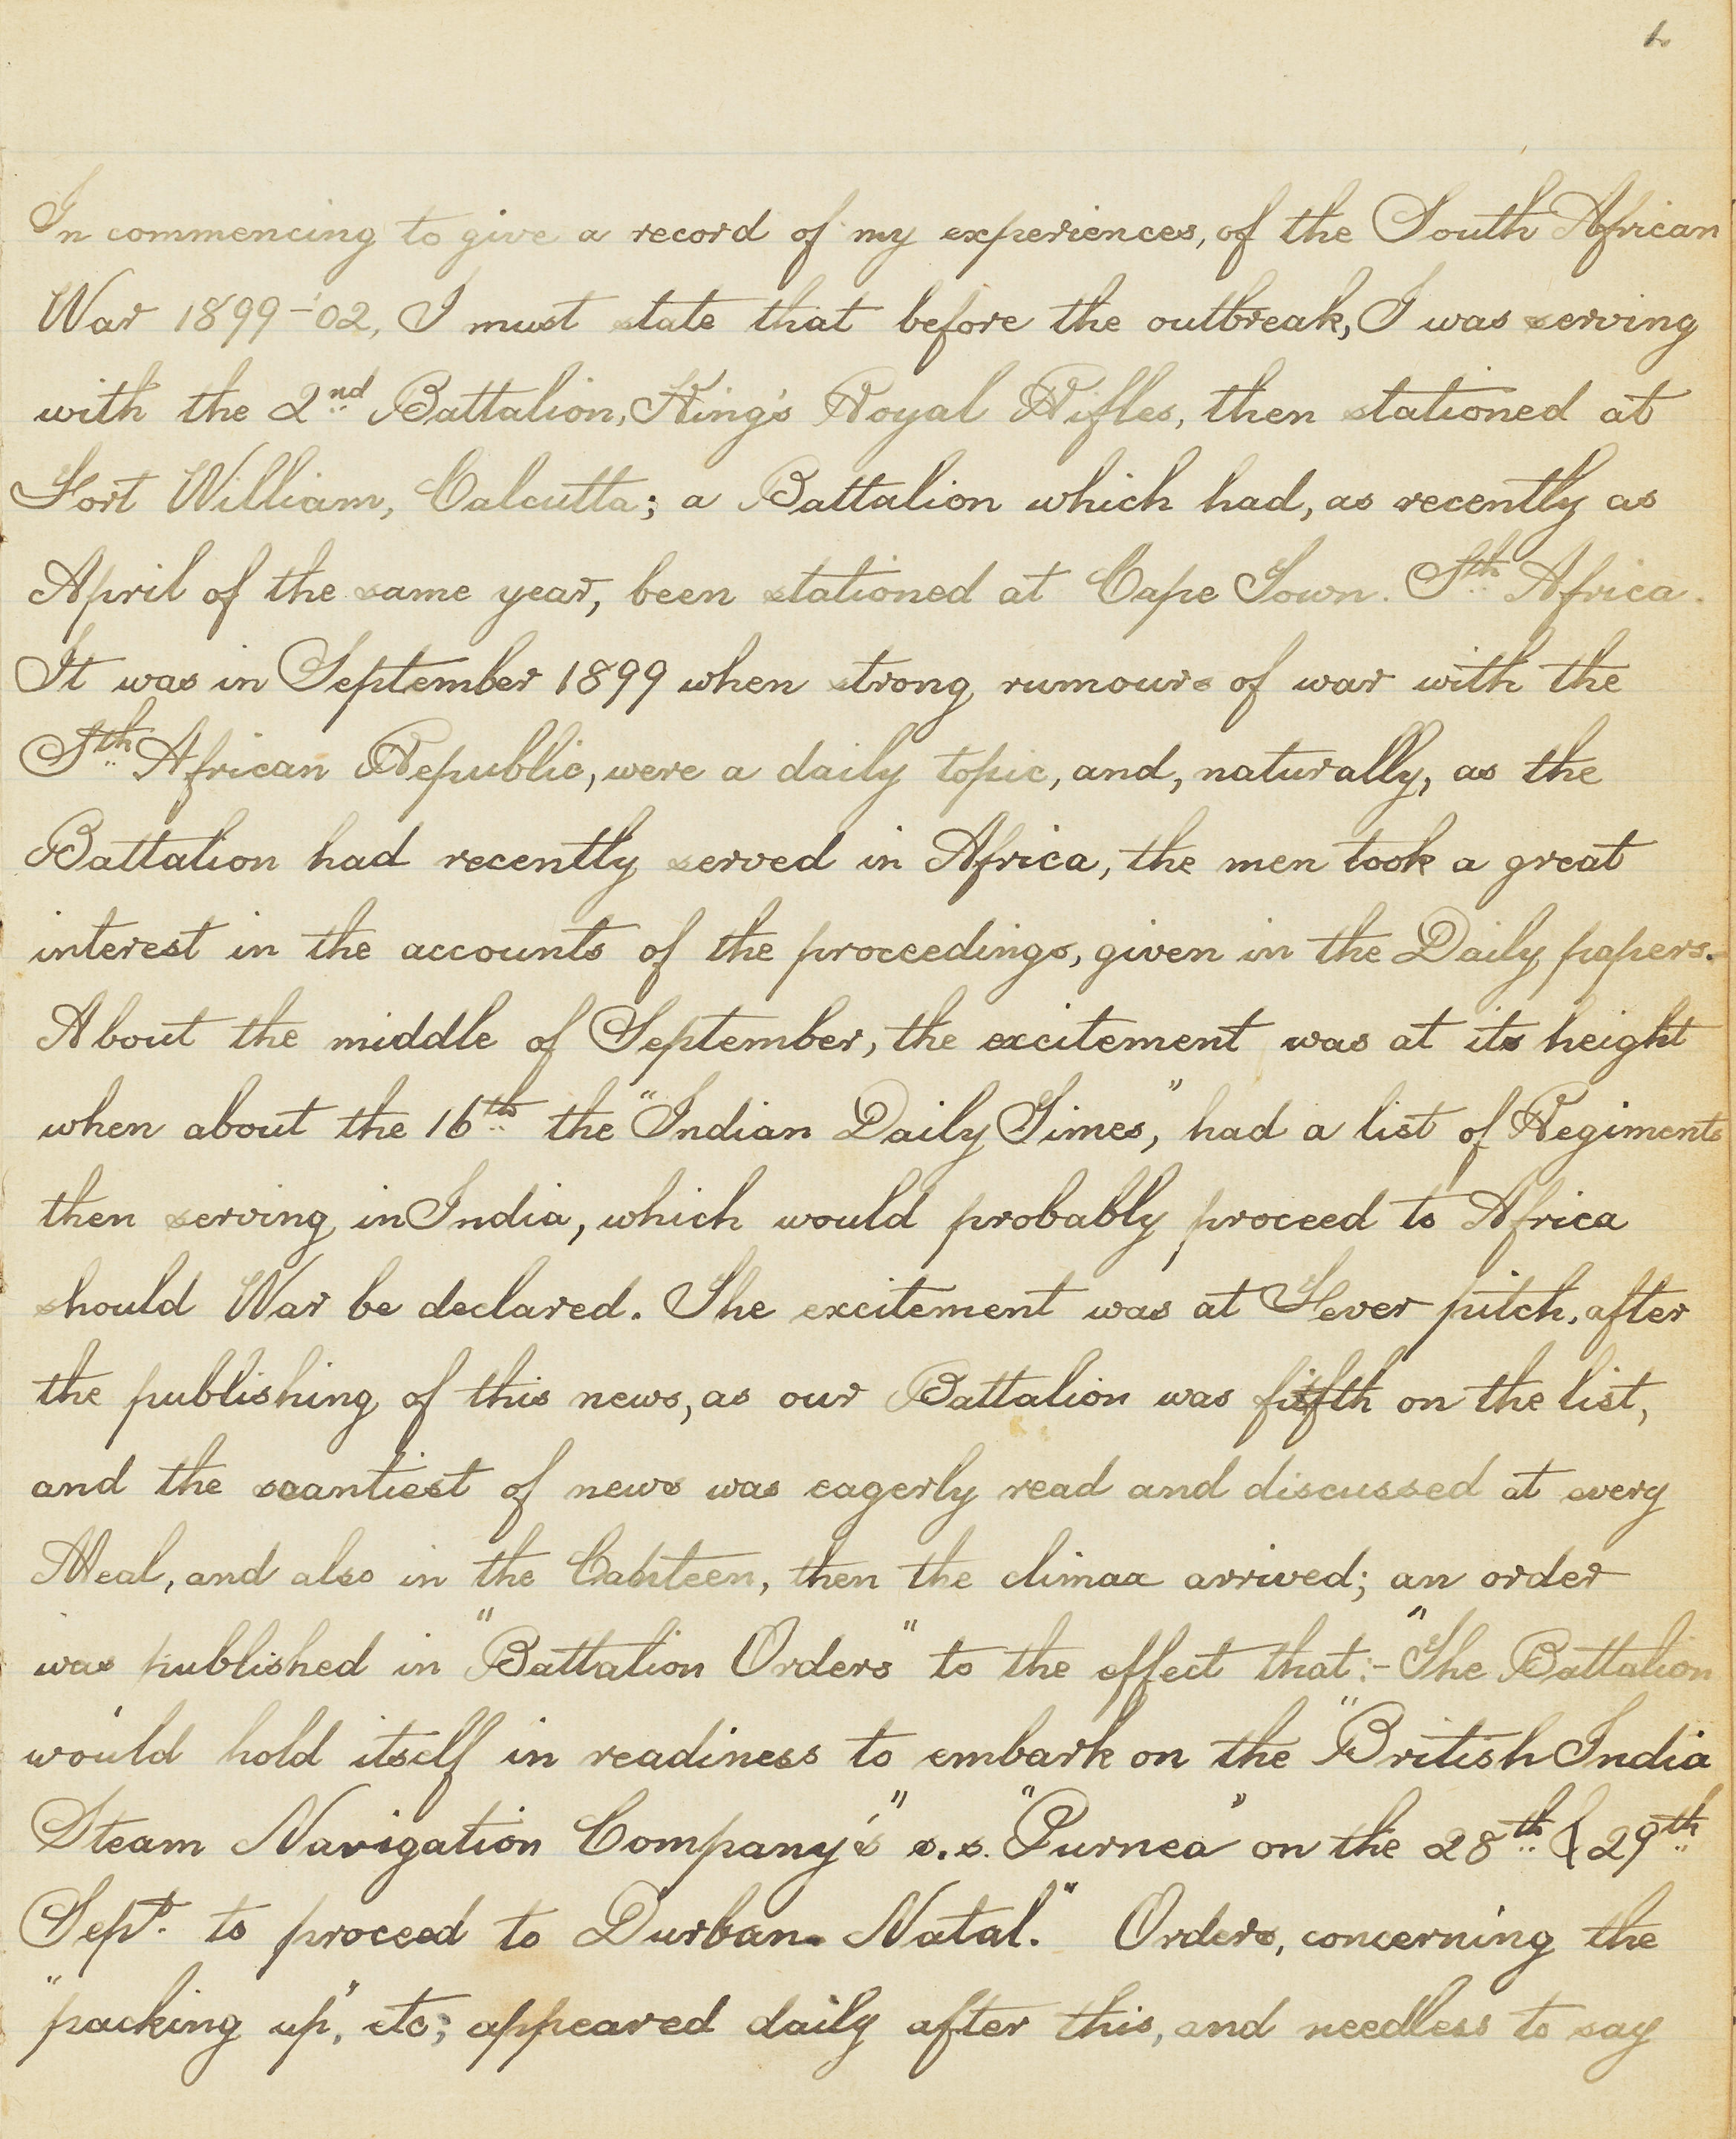 1.
In commencing to give a record of my experiences, of the South African
War 1899-'02, I must state that before the outbreak, I was serving
with the 2nd Battalion, King's Royal Rifles, then stationed at
Fort William, Calcutta; a Battalion which had, as recently as
April of the same year, been stationed at Cape Town. Sth Africa.
It was in September 1899 when strong rumours of war with the
Sth African Republic, were a daily topic, and, naturally, as the
Battalion had recently served in Africa, the men took a great
interest in the accounts of the proceedings, given in the Daily papers.
About the middle of September, the excitement was at its height
when about the 16th the "Indian Daily Times," had a list of Regiments
then serving in India, which would probably proceed to Africa
should War be declared. The excitement was at Fever pitch, after
the publishing of this news, as our Battalion was fifth on the list,
and the scantiest of news was eagerly read and discussed at every
Meal, and also in the Canteen, then the climax arrived; an order
was published in "Battalion Orders" to the effect that:- "The Battalion
would hold itself in readiness to embark on the "British India
Steam Navigation Company's" s.s. "Purnea" on the 28th & 29th
Sept. to proceed to Durban. Natal." Orders, concerning the
"packing up", etc; appeared daily after this, and needless to say